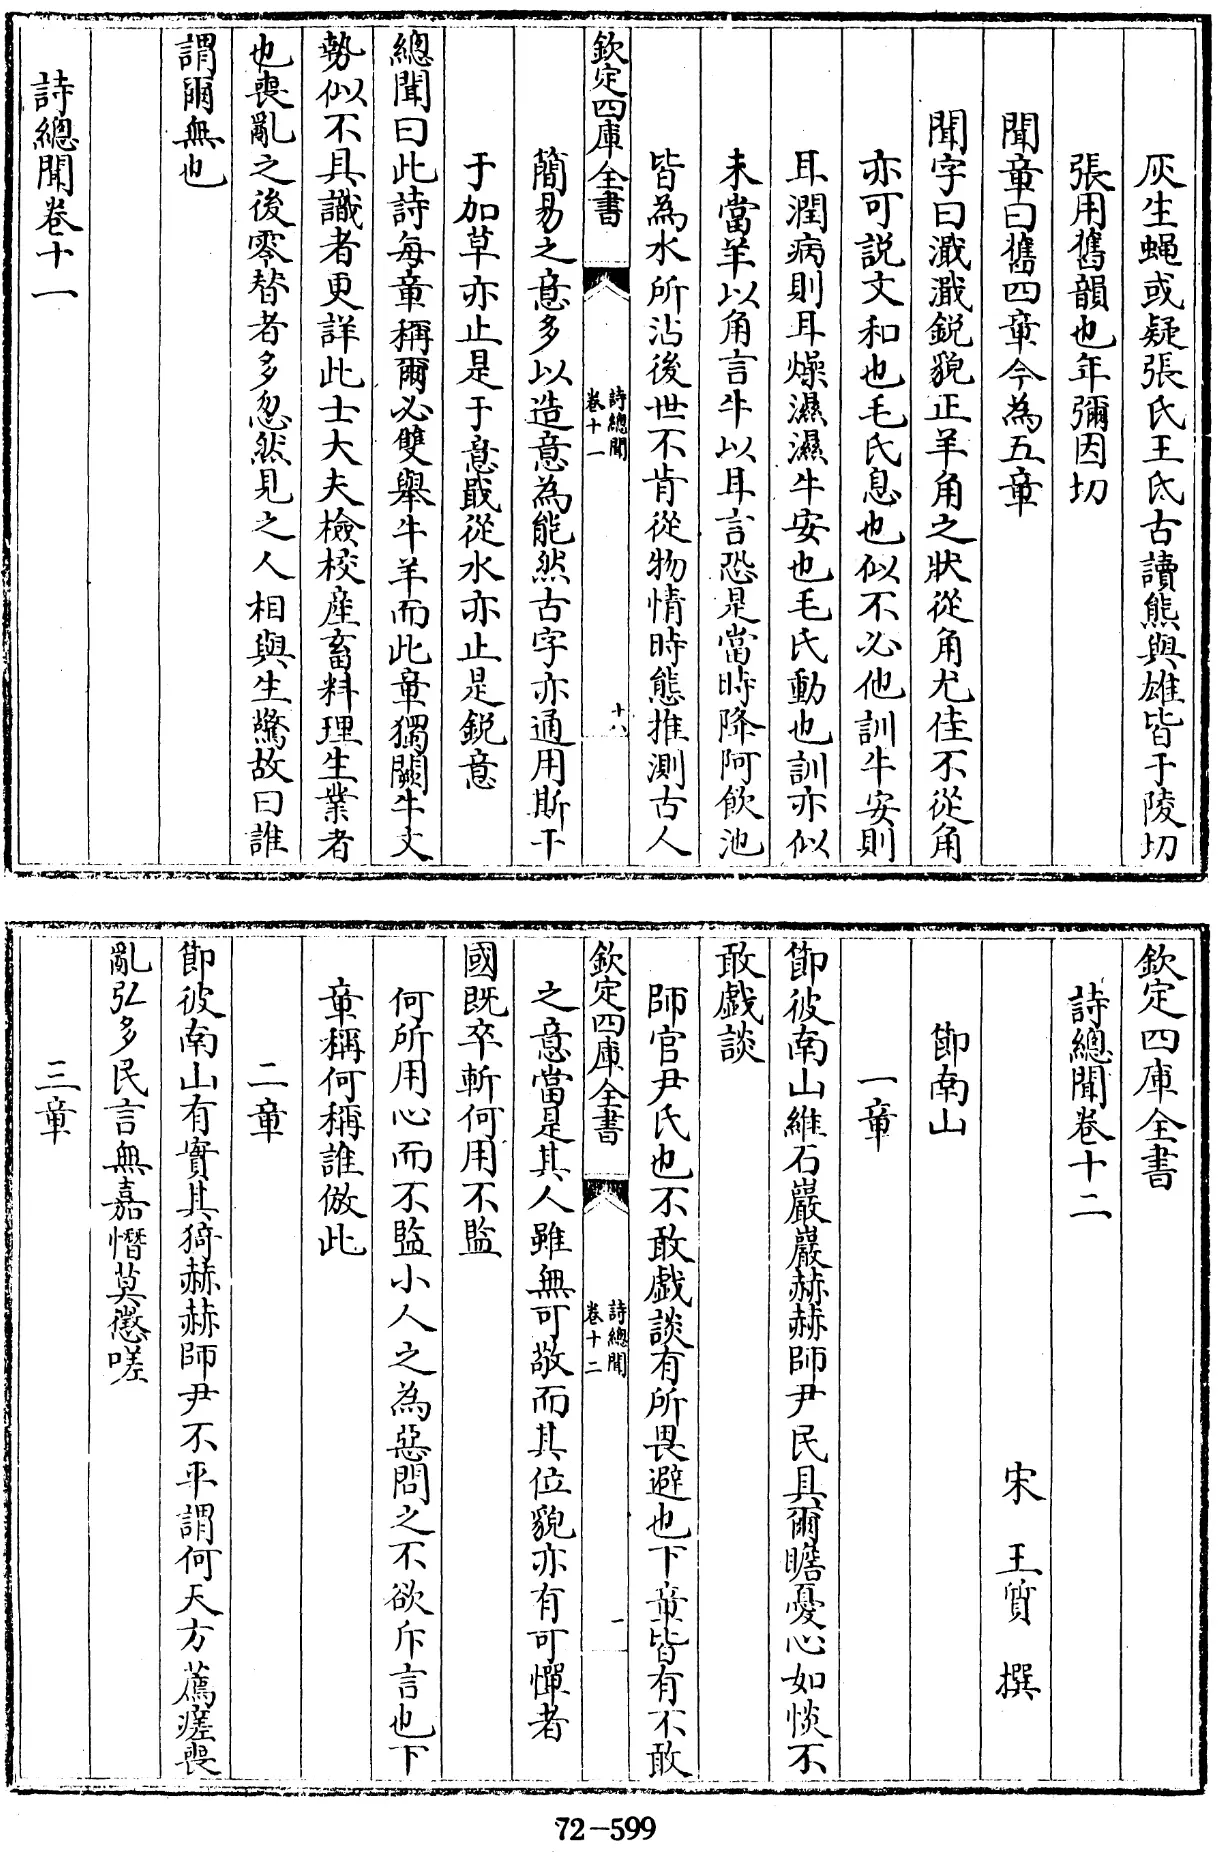 灰生蠅或疑張氏王氏古讀熊與雄皆于陵切
張用舊韻也年彌因切
聞章曰舊四章今為五章
聞字曰濈濈鋭貌正羊角之狀從角尤佳不從角
亦可説文和也毛氏息也似不必他訓牛安則
耳潤病則耳燥濕濕牛安也毛氏動也訓亦似
未當羊以角言牛以耳言恐是當時降阿飲池
皆為水所沾後世不肯從物情時態推測古人
欽定四庫全書
詩總聞
卷十一
十八
簡易之意多以造意為能然古字亦通用斯干
于加草亦止是于意戢從水亦止是鋭意
總聞曰此詩每章稱爾必雙舉牛羊而此章獨闕牛文
勢似不具識者更詳此士大夫檢校産畜料理生業者
也喪亂之後零替者多忽然見之人相與生驚故曰誰
謂爾無也
詩總聞卷十一
欽定四庫全書
詩總聞卷十二
宋 王質 撰
節南山
一章
節彼南山維石巖巖赫赫師尹民具爾瞻憂心如惔不
敢戲談
師官尹氏也不敢戲談有所畏避也下章皆有不敢
欽定四庫全書
詩總聞
卷十二
一
之意當是其人雖無可敬而其位貌亦有可憚者
國既卒斬何用不監
何所用心而不監小人之為惡問之不欲斥言也下
章稱何稱誰倣此
二章
節彼南山有實其猗赫赫師尹不平謂何天方薦瘥喪
亂弘多民言無嘉憯莫懲嗟
三章
72-599